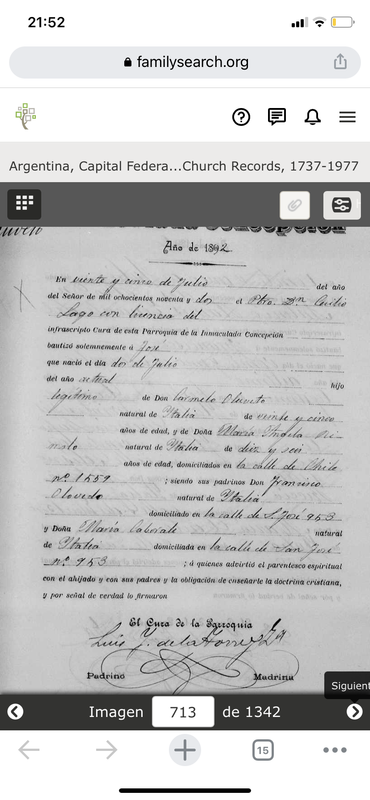 21:52
familysearch.org
Argentina, Capital Federa...Church Records, 1737-1977
Año de 1892
En veinte y cinco de Julio del año
del Señor de mil ochocientos noventa y dos el Pbro. Dn. Cecilio
Lago con licencia del
infrascripto Cura de esta Parroquia de la Inmaculada Concepción
bautizó solemnemente á José
que nació el día dos de Julio
del año actual hijo
legítimo de Don Carmelo
natural de Italia de veinte y cinco
años de edad, y de Doña María Angela
natural de Italia de diez y seis
años de edad, domiciliados en la calle de Chile
nº 1559 ; siendo sus padrinos Don Francisco
natural de Italia
domiciliado en la calle de S. José 953
y Doña María natural
de Italia domiciliada en la calle de San José
nº 953 ; á quienes advirtió el parentesco espiritual
con el ahijado y con sus padres y la obligación de enseñarle la doctrina cristiana,
y por señal de verdad lo firmaron
El Cura de la Parroquia
Luis J. de la Torre y
Padrino Madrina
Siguient
Imagen 713 de 1342
15